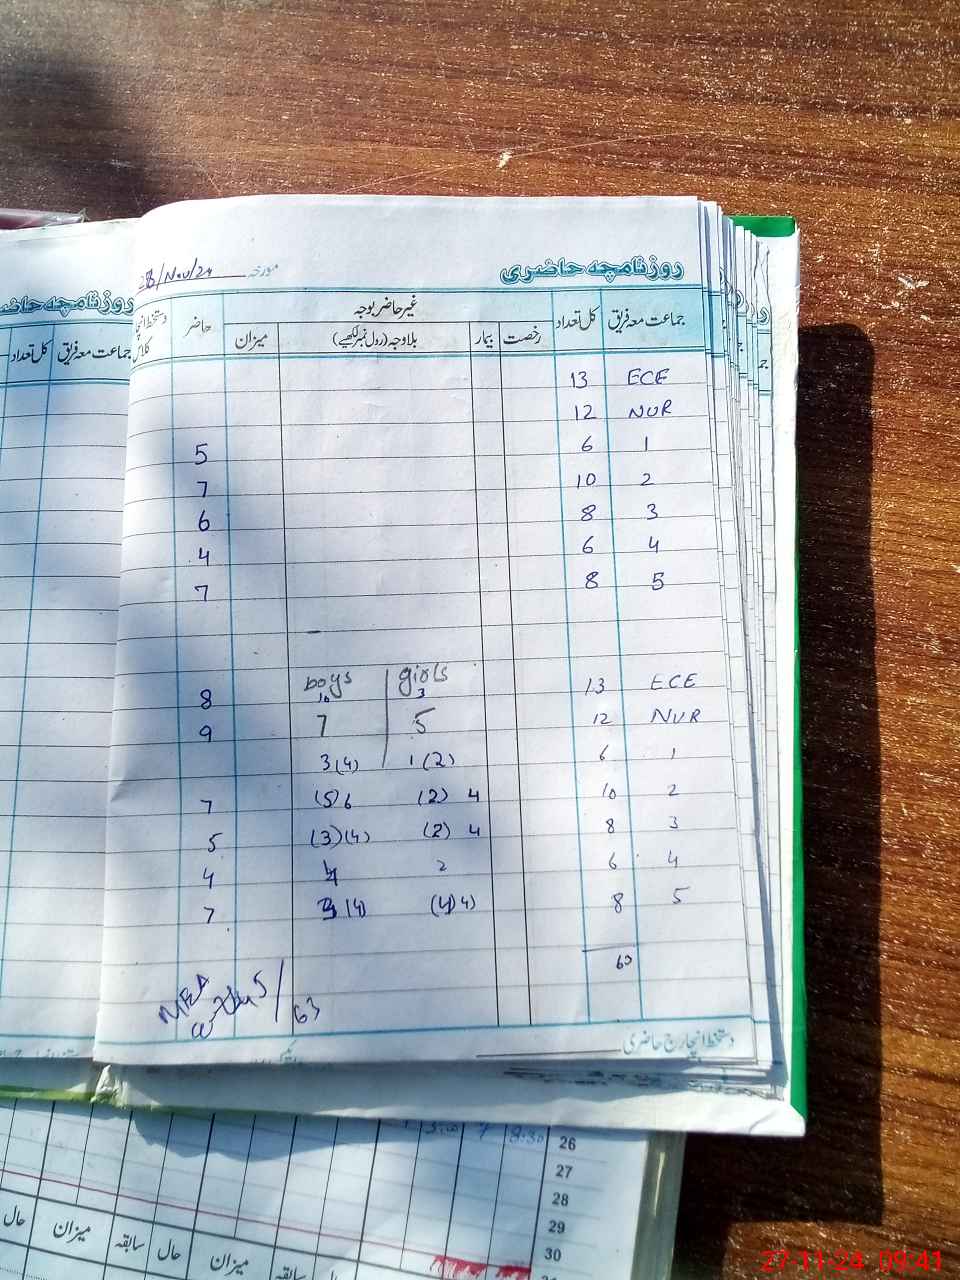 روزنامچہ حاضری
مورخہ 28/Nov/24
جماعت معہ فریق کل تعداد غیر حاضر بوجہ حاضر دستخط انچارج کلاس
رخصت بیمار بلاوجہ (رول نمبر لکھیے) میزان
ECE 13
NUR 12
1 6 5
2 10 7
3 8 6
4 6 4
5 8 7
boys girls
ECE 13 3 10 8
NUR 12 5 7 9
1 6 1 (2) 3 (4)
2 10 (2) 4 (5) 6 7
3 8 (2) 4 (3) (4) 5
4 6 2 4 4
5 8 (4) 4) (4) 7
63
MEA
63
دستخط انچارج حاضری
روزنامچہ حاضری
جماعت معہ فریق کل تعداد
8:30 26
27
28
29
30
حال میزان سابقہ حال میزان سابقہ
27-11-24 09:41